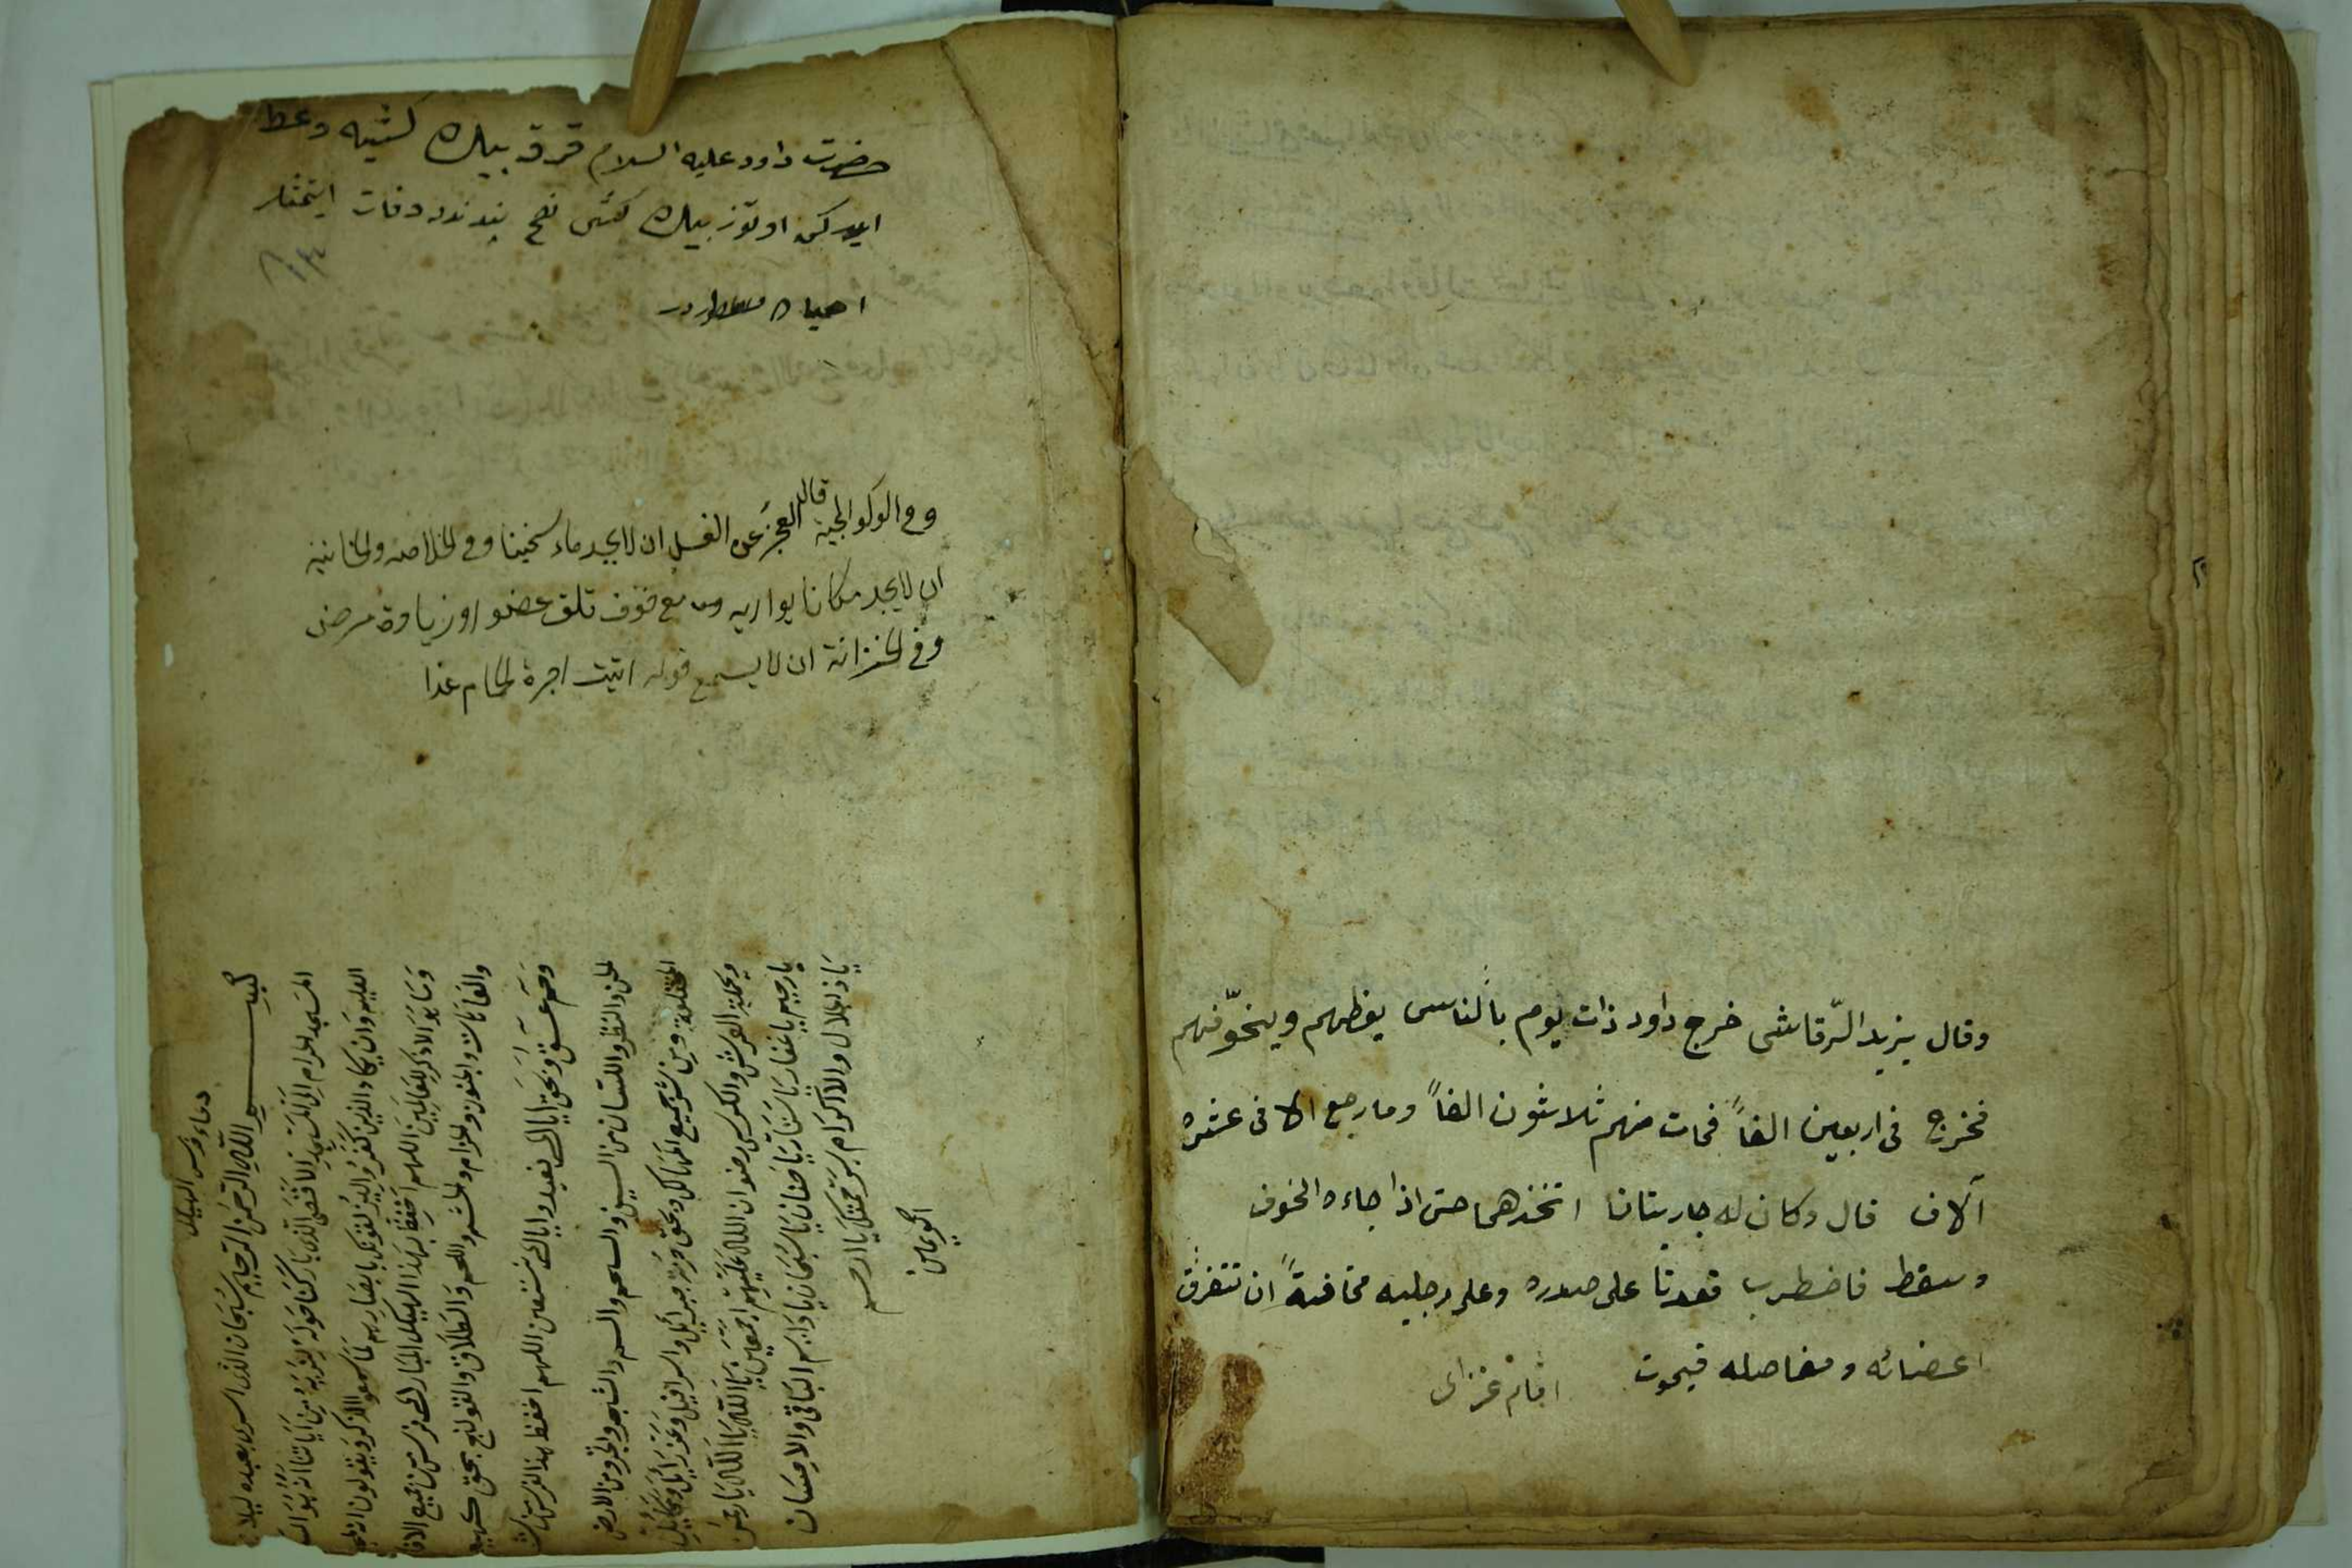 وقال يزيد الرّقاشى خرج داود ذات يوم بالناس يعظهم ويخوّفهم
فخرج فى اربعين الفاً فمات منهم ثلاثون الفاً وما رجع الا فى عشرة
آلاف قال وكان له جاريتان اتخذهما حتى اذا جاءه الخوف
وسقط فاضطرب قعدتا على صدره وعلى رجليه مخافةً ان تتفرق
اعضائه ومفاصله فيموت امام غزالى
حضرت داود عليه السلام قرق بيك كشيه وعظ
ايدركن اوتوز بيك كشى نصح پندندن وفات ايتمشلر
احياده مسطوردر
وفى الولوالجية قال العجز عن الغسل ان لا يجد ماء سخينا وفى الخلاصة والخانية
ان لا يجد مكانا يواريه ومع خوف تلف عضو او زيادة مرض
وفى الخزانة ان لا يسمع قوله اتيت اجرة الحمام غدا
دعاء فرس الهيكل
بسم الله الرحمن الرحيم سبحان الذى اسرى بعبده ليلا من
المسجد الحرام الى المسجد الاقصى الذى باركنا حوله لنريه من اياتنا انه هو السميع
العليم وان يكاد الذين كفروا ليزلقونك بابصارهم لما سمعوا الذكر ويقولون انه لمجنون
وما هو الا ذكر للعالمين اللهم احفظ بهذا الهيكل المبارك فرس من جميع الافات
والعاهات والجنون والجزام والحشر واللحم والطلاق والقولنج بحق كهيعص
وحم عسق وبحق اياك نعبد واياك نستعين اللهم احفظ بهذا الفرس من شر
الجن والنظر واللسان من السيف والسحر والسم والشجر والحجر ومن الارض
المظلمة ومن شر جميع المهالك وبحق حرمة جبرائيل واسرافيل وعزرائيل وميكائيل
وبحملة العرش والكرسى رضوان الله عليهم اجمعين يا الله يا الله يا رحمن
يا رحيم يا غفار يا ستار يا حنان يا سبحان يا دايم الباقى والاحسان
يا ذا الجلال والاكرام برحمتك يا ارحم